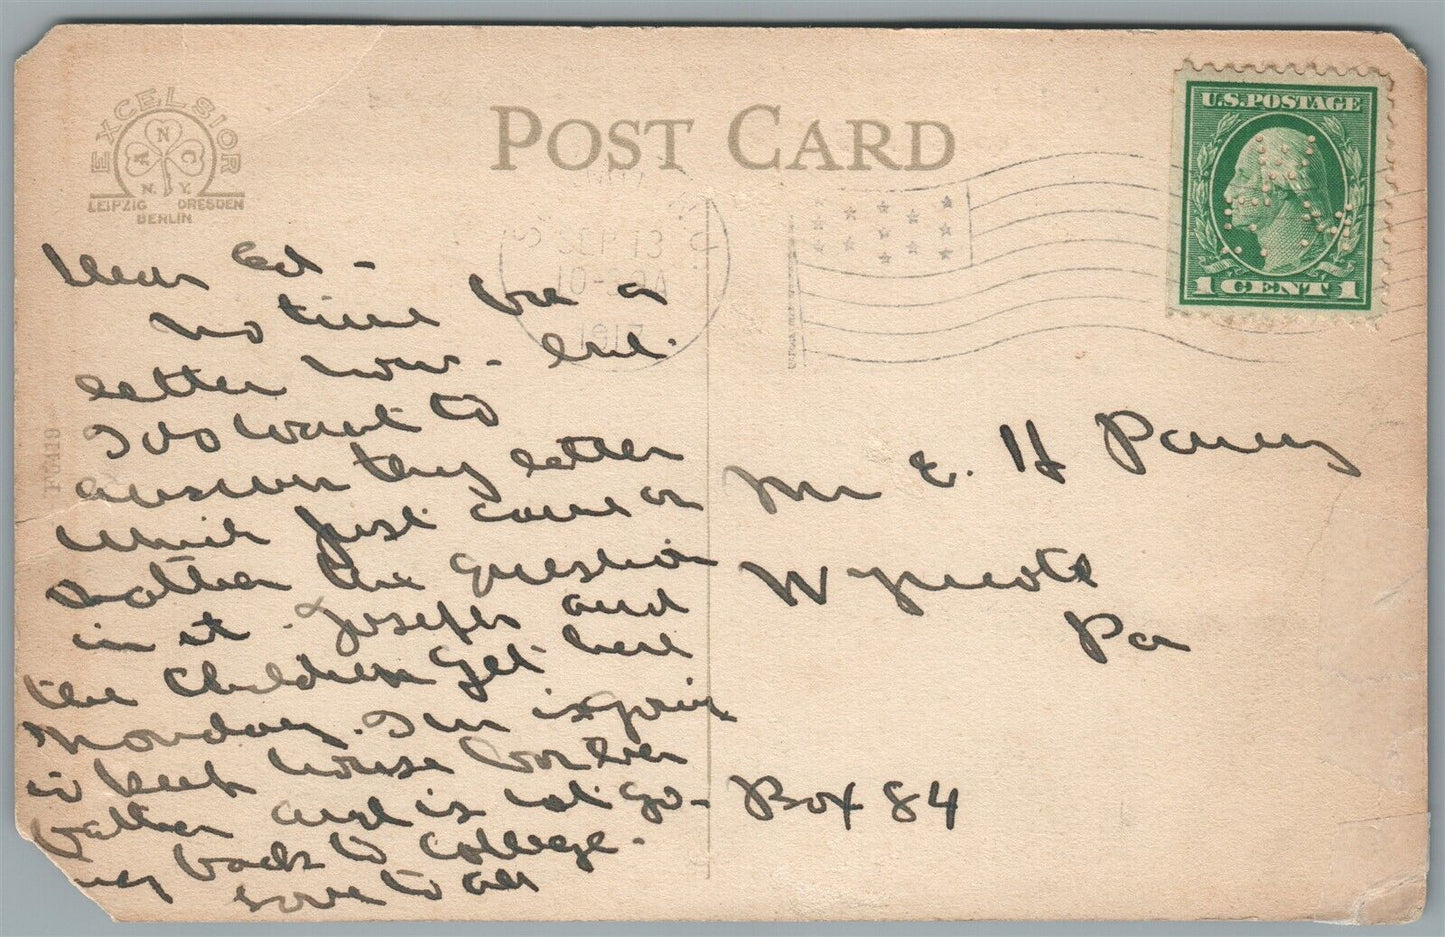 EXCELSIOR
A N C
N. Y.
LEIPZIG DRESDEN
BERLIN
POST CARD
U.S. POSTAGE
1 CENT 1
SEP 13
1917
Dear Ed -
no time for a
letter now - but
I do want to
answer thy letter
which just came or
rather the question
in it. Joseph and
the children get here
Monday. Im is going
to keep house for her
father and is not go-
ing back to College.
Love to all
Mr E. H
Wyncote
Pa
Box 84